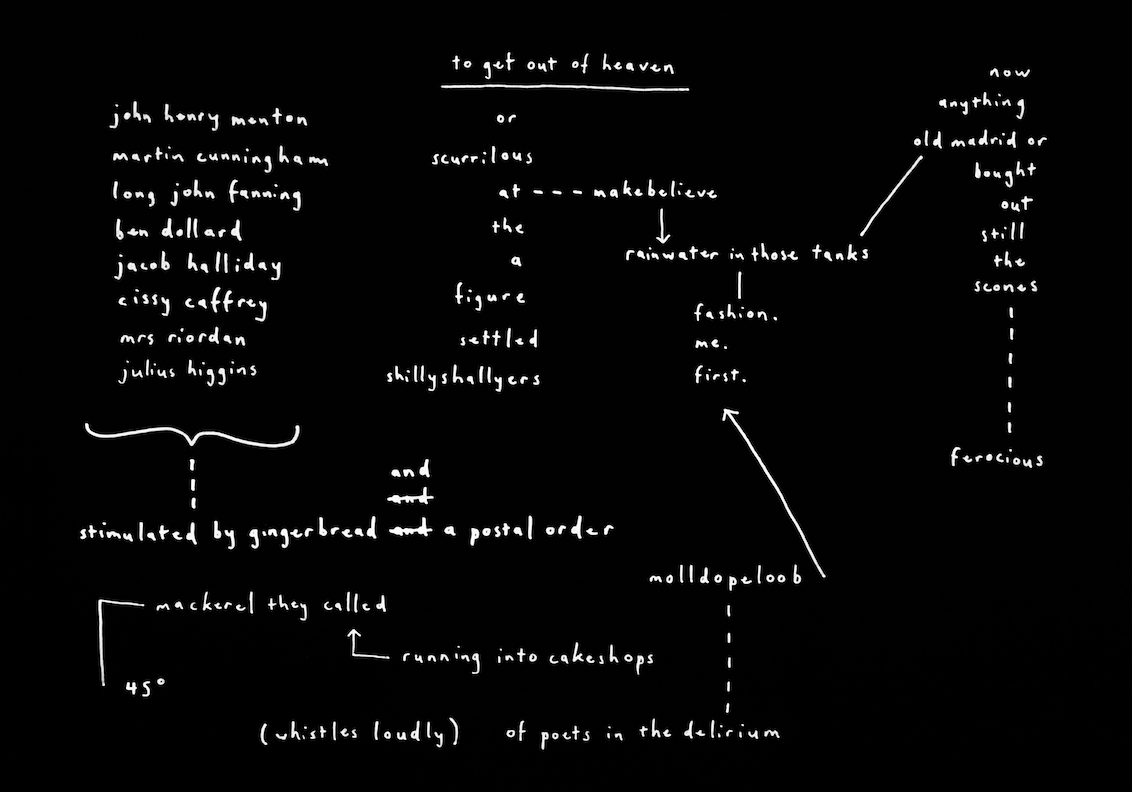 to get out of heaven
john henry menton
martin cunningham
long john fanning
ben dollard
jacob halliday
cissy caffrey
mrs riordan
julius higgins
or
scurrilous
at --- makebelieve
the
a
figure
settled
shillyshallyers
rainwater in those tanks
fashion.
me.
first.
now
anything
old madrid or
bought
out
still
the
scones
ferocious
and
and
stimulated by gingerbread and a postal order
molldopeloob
mackerel they called
running into cakeshops
45°
(whistles loudly) of poets in the delirium